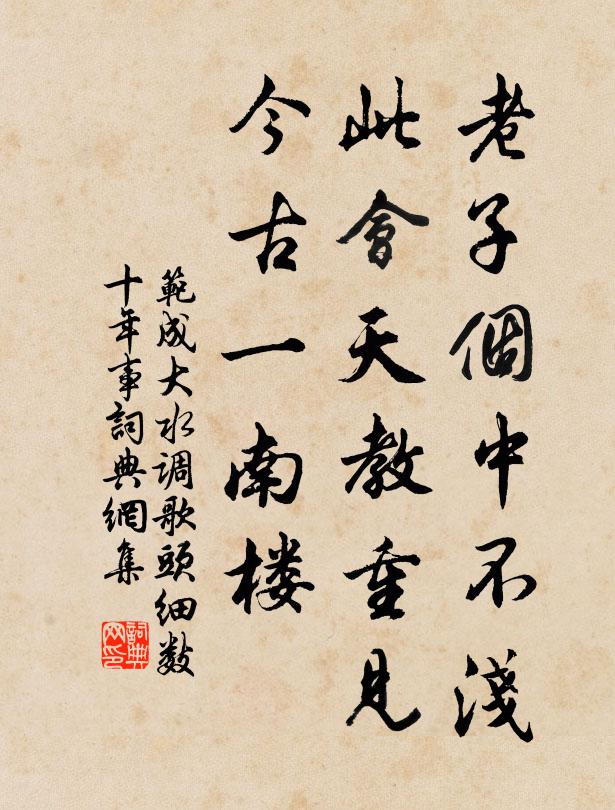 老子個中不淺
此會天教重見
今古一南楼
範成大水调歌頭細数
十年事詞典網集
詞典
网印